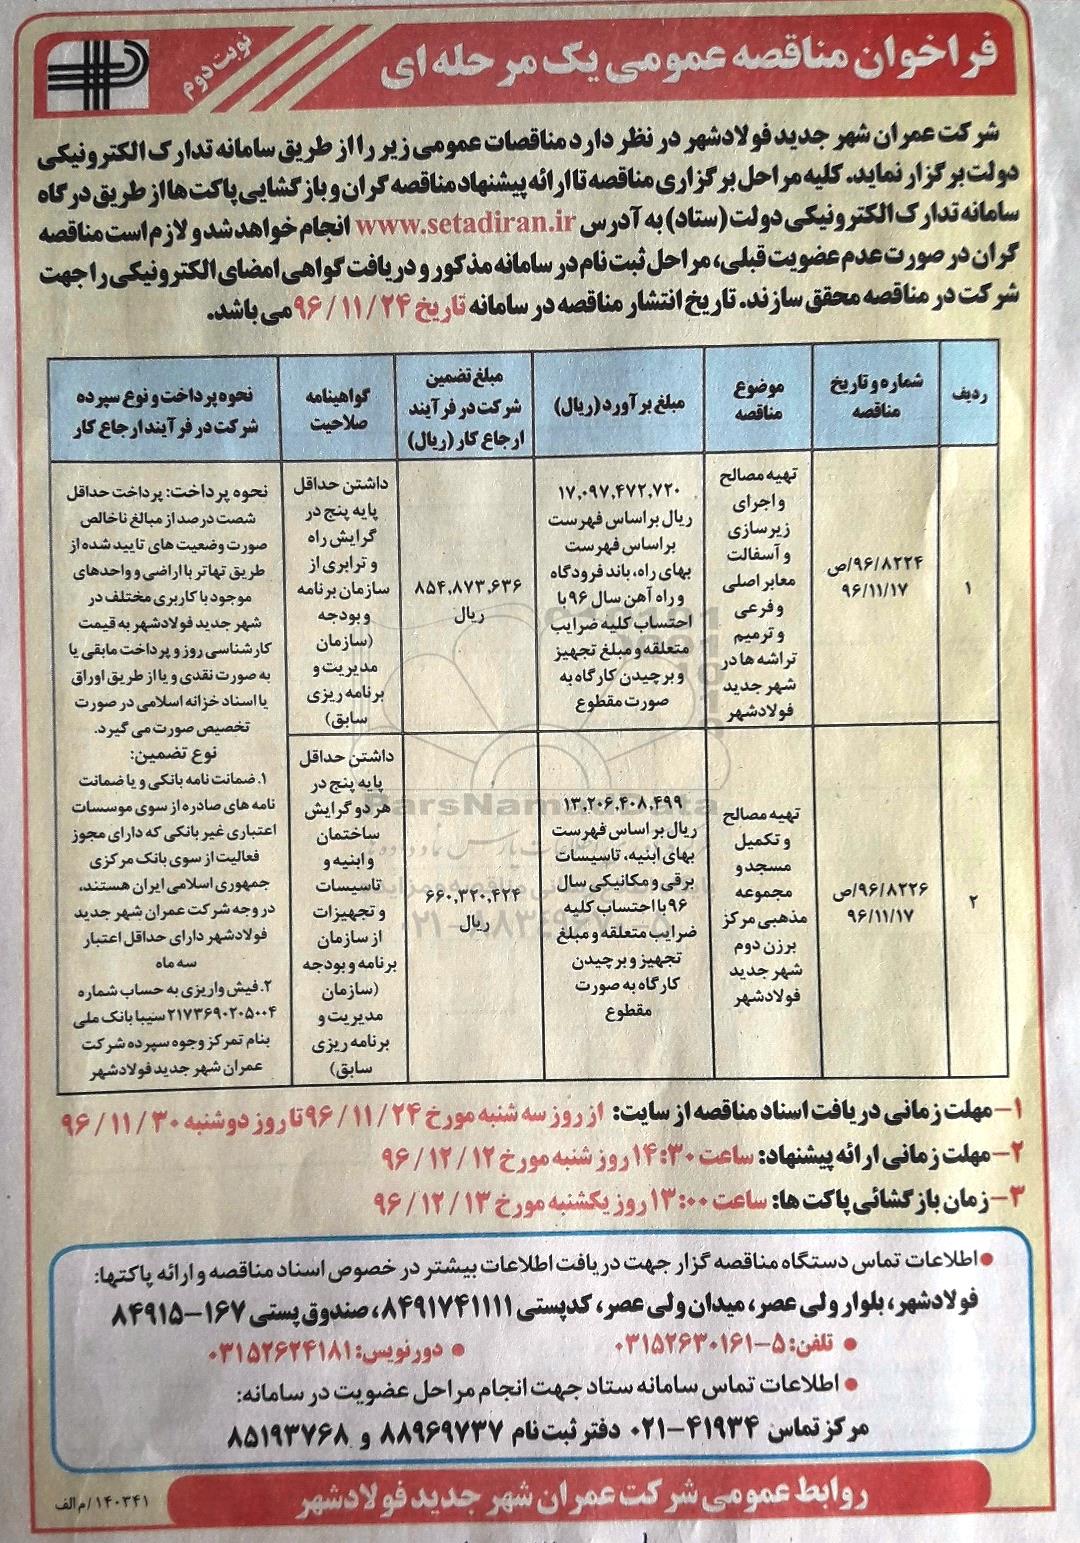 فراخوان مناقصه عمومی یک مرحله ای
نوبت دوم
شرکت عمران شهر جدید فولادشهر در نظر دارد مناقصات عمومی زیر را از طریق سامانه تدارک الکترونیکی
دولت برگزار نماید. کلیه مراحل برگزاری مناقصه تا ارائه پیشنهاد مناقصه گران و بازگشایی پاکت ها از طریق درگاه
سامانه تدارک الکترونیکی دولت (ستاد) به آدرس www.setadiran.ir انجام خواهد شد و لازم است مناقصه
گران در صورت عدم عضویت قبلی، مراحل ثبت نام در سامانه مذکور و دریافت گواهی امضای الکترونیکی را جهت
شرکت در مناقصه محقق سازند. تاریخ انتشار مناقصه در سامانه تاریخ ۹۶/۱۱/۲۴ می باشد.
ردیف
شماره و تاریخ
مناقصه
موضوع
مناقصه
مبلغ برآورد (ریال)
مبلغ تضمین
شرکت در فرآیند
ارجاع کار (ریال)
گواهینامه
صلاحیت
نحوه پرداخت و نوع سپرده
شرکت در فرآیند ارجاع کار
۱
۹۶/۸۲۲۴/ص
۹۶/۱۱/۱۷
تهیه مصالح
و اجرای
زیرسازی
و آسفالت
معابر اصلی
و فرعی
و ترمیم
تراشه ها در
شهر جدید
فولادشهر
۱۷,۰۹۷,۴۷۲,۷۲۰
ریال بر اساس فهرست
بر اساس فهرست
بهای راه، باند فرودگاه
و راه آهن سال ۹۶ با
احتساب کلیه ضرایب
متعلقه و مبلغ تجهیز
و برچیدن کارگاه به
صورت مقطوع
۸۵۴,۸۷۳,۶۳۶
ریال
داشتن حداقل
پایه پنج در
گرایش راه
و ترابری از
سازمان برنامه
و بودجه
(سازمان
مدیریت و
برنامه ریزی
سابق)
نحوه پرداخت: پرداخت حداقل
شصت درصد از مبالغ ناخالص
صورت وضعیت های تایید شده از
طریق تهاتر با اراضی و واحدهای
موجود با کاربری مختلف در
شهر جدید فولادشهر به قیمت
کارشناسی روز و پرداخت مابقی یا
به صورت نقدی و یا از طریق اوراق
یا اسناد خزانه اسلامی در صورت
تخصیص صورت می گیرد.
نوع تضمین:
۱. ضمانت نامه بانکی و یا ضمانت
نامه های صادره از سوی موسسات
اعتباری غیر بانکی که دارای مجوز
فعالیت از سوی بانک مرکزی
جمهوری اسلامی ایران هستند،
در وجه شرکت عمران شهر جدید
فولادشهر دارای حداقل اعتبار
سه ماه
۲. فیش واریزی به حساب شماره
۲۱۷۳۶۹۰۲۰۵۰۰۴ سیبا بانک ملی
بنام تمرکز وجوه سپرده شرکت
عمران شهر جدید فولادشهر
۲
۹۶/۸۲۲۶/ص
۹۶/۱۱/۱۷
تهیه مصالح
و تکمیل
مسجد و
مجموعه
مذهبی مرکز
برزن دوم
شهر جدید
فولادشهر
۱۳,۲۰۶,۴۰۸,۴۹۹
ریال بر اساس فهرست
بهای ابنیه، تاسیسات
برقی و مکانیکی سال
۹۶ با احتساب کلیه
ضرایب متعلقه و مبلغ
تجهیز و برچیدن
کارگاه به صورت
مقطوع
۶۶۰,۳۲۰,۴۲۴
ریال
داشتن حداقل
پایه پنج در
هر دو گرایش
ساختمان
و ابنیه و
تاسیسات
و تجهیزات
از سازمان
برنامه و بودجه
(سازمان
مدیریت و
برنامه ریزی
سابق)
ParsNamadData
۱- مهلت زمانی دریافت اسناد مناقصه از سایت: از روز سه شنبه مورخ ۹۶/۱۱/۲۴ تا روز دوشنبه ۹۶/۱۱/۳۰
۲- مهلت زمانی ارائه پیشنهاد: ساعت ۱۴:۳۰ روز شنبه مورخ ۹۶/۱۲/۱۲
۳- زمان بازگشائی پاکت ها: ساعت ۱۳:۰۰ روز یکشنبه مورخ ۹۶/۱۲/۱۳
● اطلاعات تماس دستگاه مناقصه گزار جهت دریافت اطلاعات بیشتر در خصوص اسناد مناقصه و ارائه پاکتها:
فولادشهر، بلوار ولی عصر، میدان ولی عصر، کدپستی ۸۴۹۱۷۴۱۱۱۱، صندوق پستی ۱۶۷-۸۴۹۱۵
● تلفن: ۵-۰۳۱۵۲۶۳۰۱۶۱ ● دورنویس: ۰۳۱۵۲۶۲۴۱۸۱
● اطلاعات تماس سامانه ستاد جهت انجام مراحل عضویت در سامانه:
مرکز تماس ۴۱۹۳۴-۰۲۱ دفتر ثبت نام ۸۸۹۶۹۷۳۷ و ۸۵۱۹۳۷۶۸
روابط عمومی شرکت عمران شهر جدید فولادشهر
۱۴۰۳۴۱/م الف